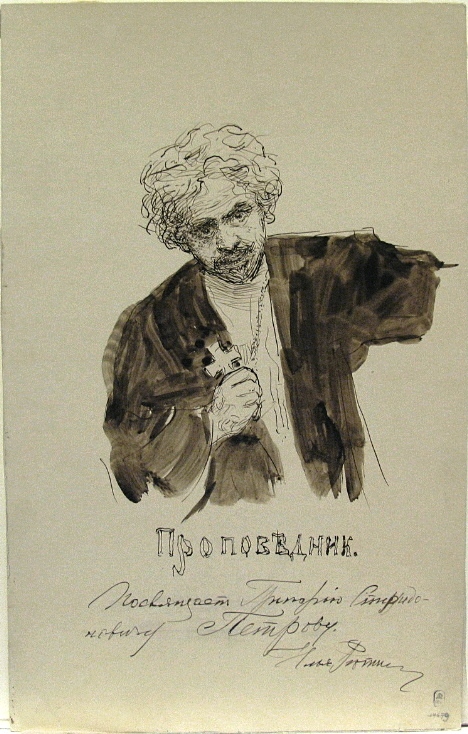 Проповѣдник.
Посвящает Григорію Спиридо-
новичу Петрову.
Илья Рѣпин